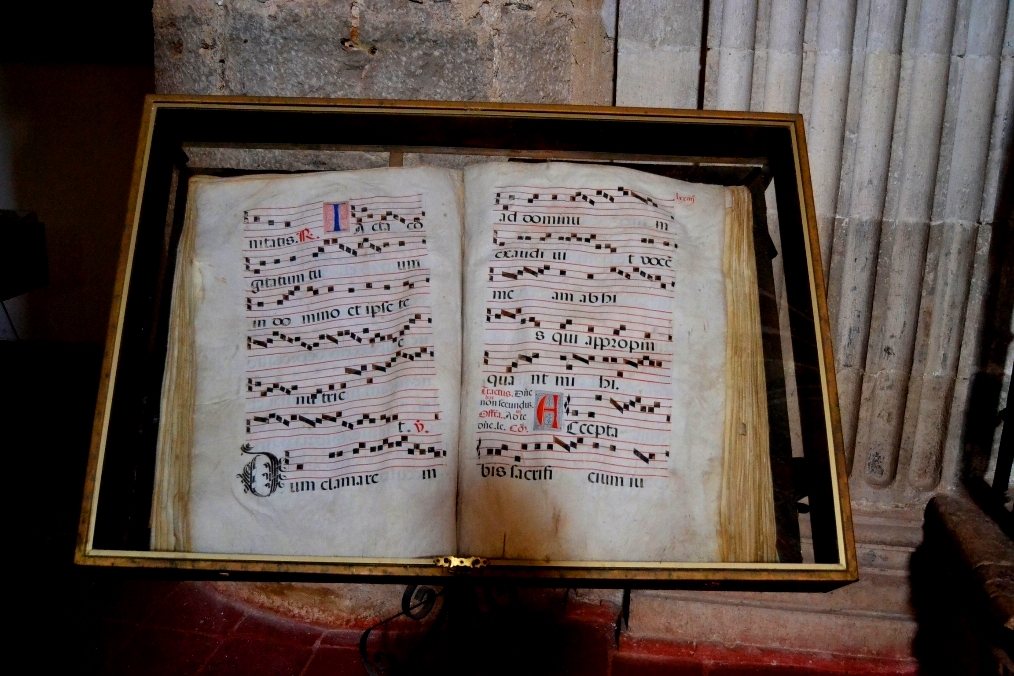 I A cta co
nitatis. R.
gitatum tu um
in do mino et ipse te
e
nu tric
t. V.
D um clamare m
lxxiiij
ad dominu m
exaudi ui t vocē
me am ab hi
s qui appropin
qua nt mi hi.
Tractus. Dñe
non secundū.
Offa. Ad te
dñe. le. Cō. A Ccepta
bis sacrifi cium iu